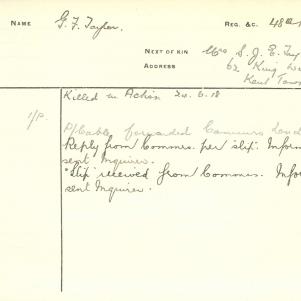 NAME G. F. Taylor. REG. &C. 48th
NEXT OF KIN Mrs S. J. E. Tay
ADDRESS 62 King
Kent Town
Killed in Action 20.6.18
1/P. P/Cable forwarded
Reply from Commrs. per slip. Inform
sent Inquirer.
"Slip" received from Commrs. Infor
sent Inquirer.